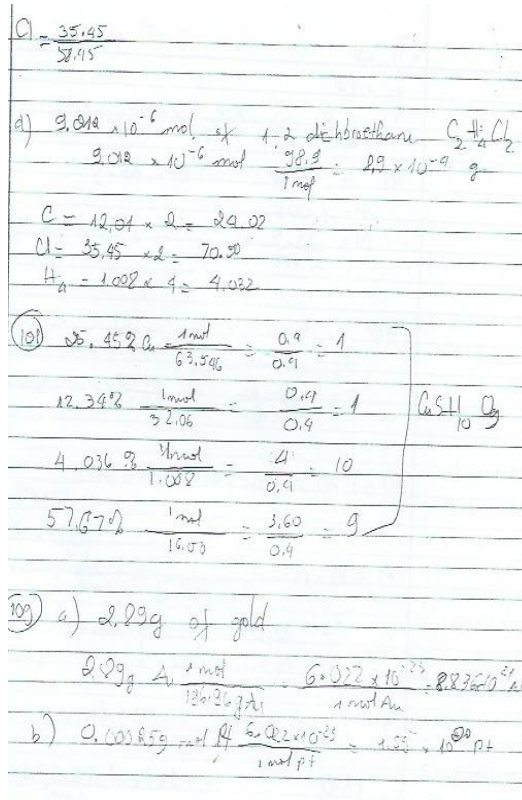 Cl = 35.45 / 58.45
d) 9.012 × 10⁻⁶ mol of 1-2 dichloroethane C₂H₄Cl₂
9.012 × 10⁻⁶ mol 98.9 / 1 mol = 8,9 × 10⁻⁴ g
C = 12,01 × 2 = 24.02
Cl = 35,45 × 2 = 70.90
H₄ = 1.008 × 4 = 4.032
108) 25.45% Cu 1mol / 63,546 = 0.4 / 0.4 = 1
12.34% 1mol / 32.06 = 0.4 / 0.4 = 1 CuSH₁₀O₉
4.036% 1mol / 1.008 = 4 / 0.4 = 10
57.67% 1mol / 16.00 = 3.60 / 0.4 = 9
109) a) 2,89g of gold
2.89g Au 1 mol / 196.96 g Au = 6.022 × 10⁻²³ / 1 mol Au =
b) mol Pt 6.022 × 10⁻²³ / 1 mol pt = × 10 pt